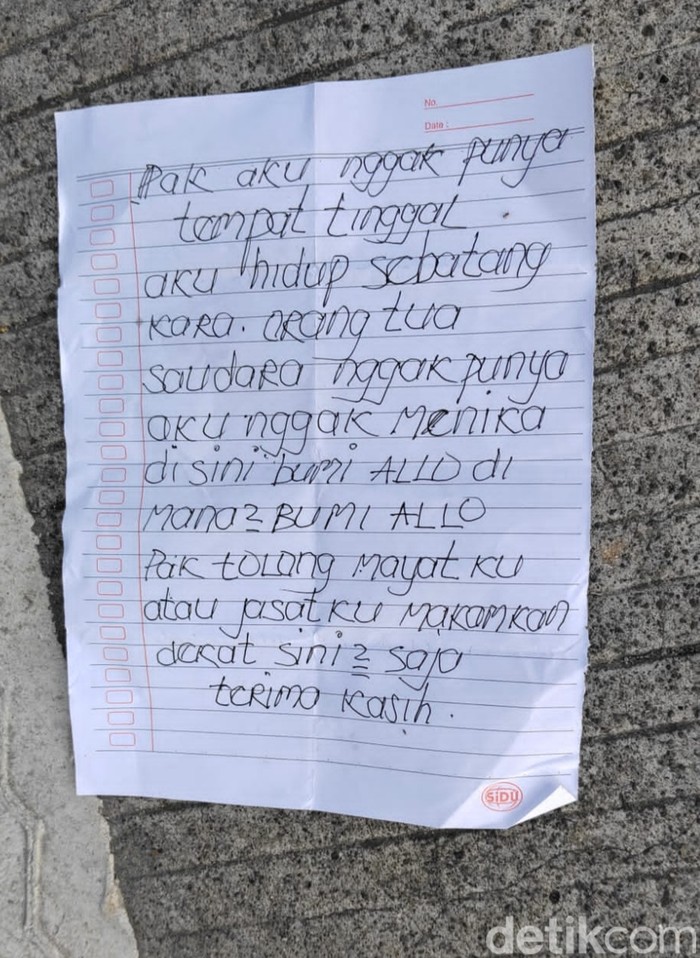 No.
Date :
Pak aku nggak punya
tempat tinggal
aku hidup sebatang
kara. orang tua
saudara nggak punya
aku nggak menika
disini bumi ALLO di
mana2 BUMI ALLO
Pak tolong mayat ku
atau jasat ku makamkan
dekat sini2 saja
terima kasih.
SiDU
detikcom